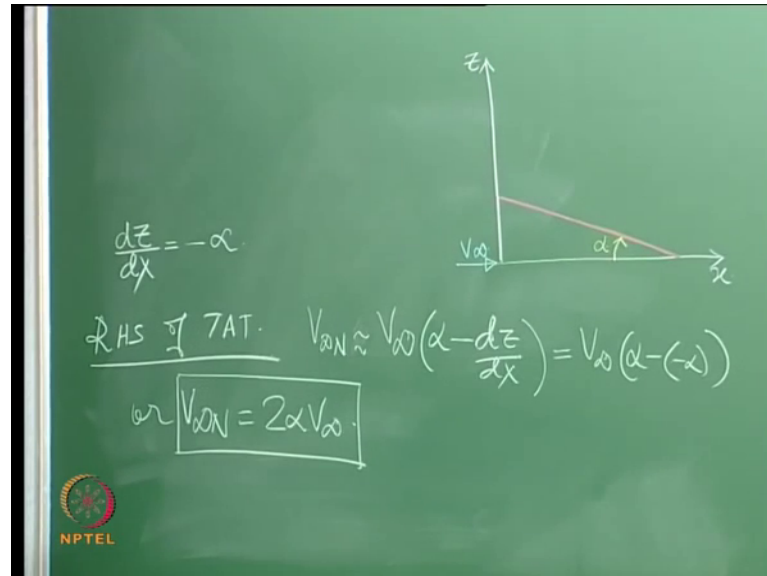 z
V∞
α
x
dz/dx = -α.
RHS of TAT. V∞N ≈ V∞(α - dz/dx) = V∞(α - (-α))
or V∞N = 2αV∞.
NPTEL